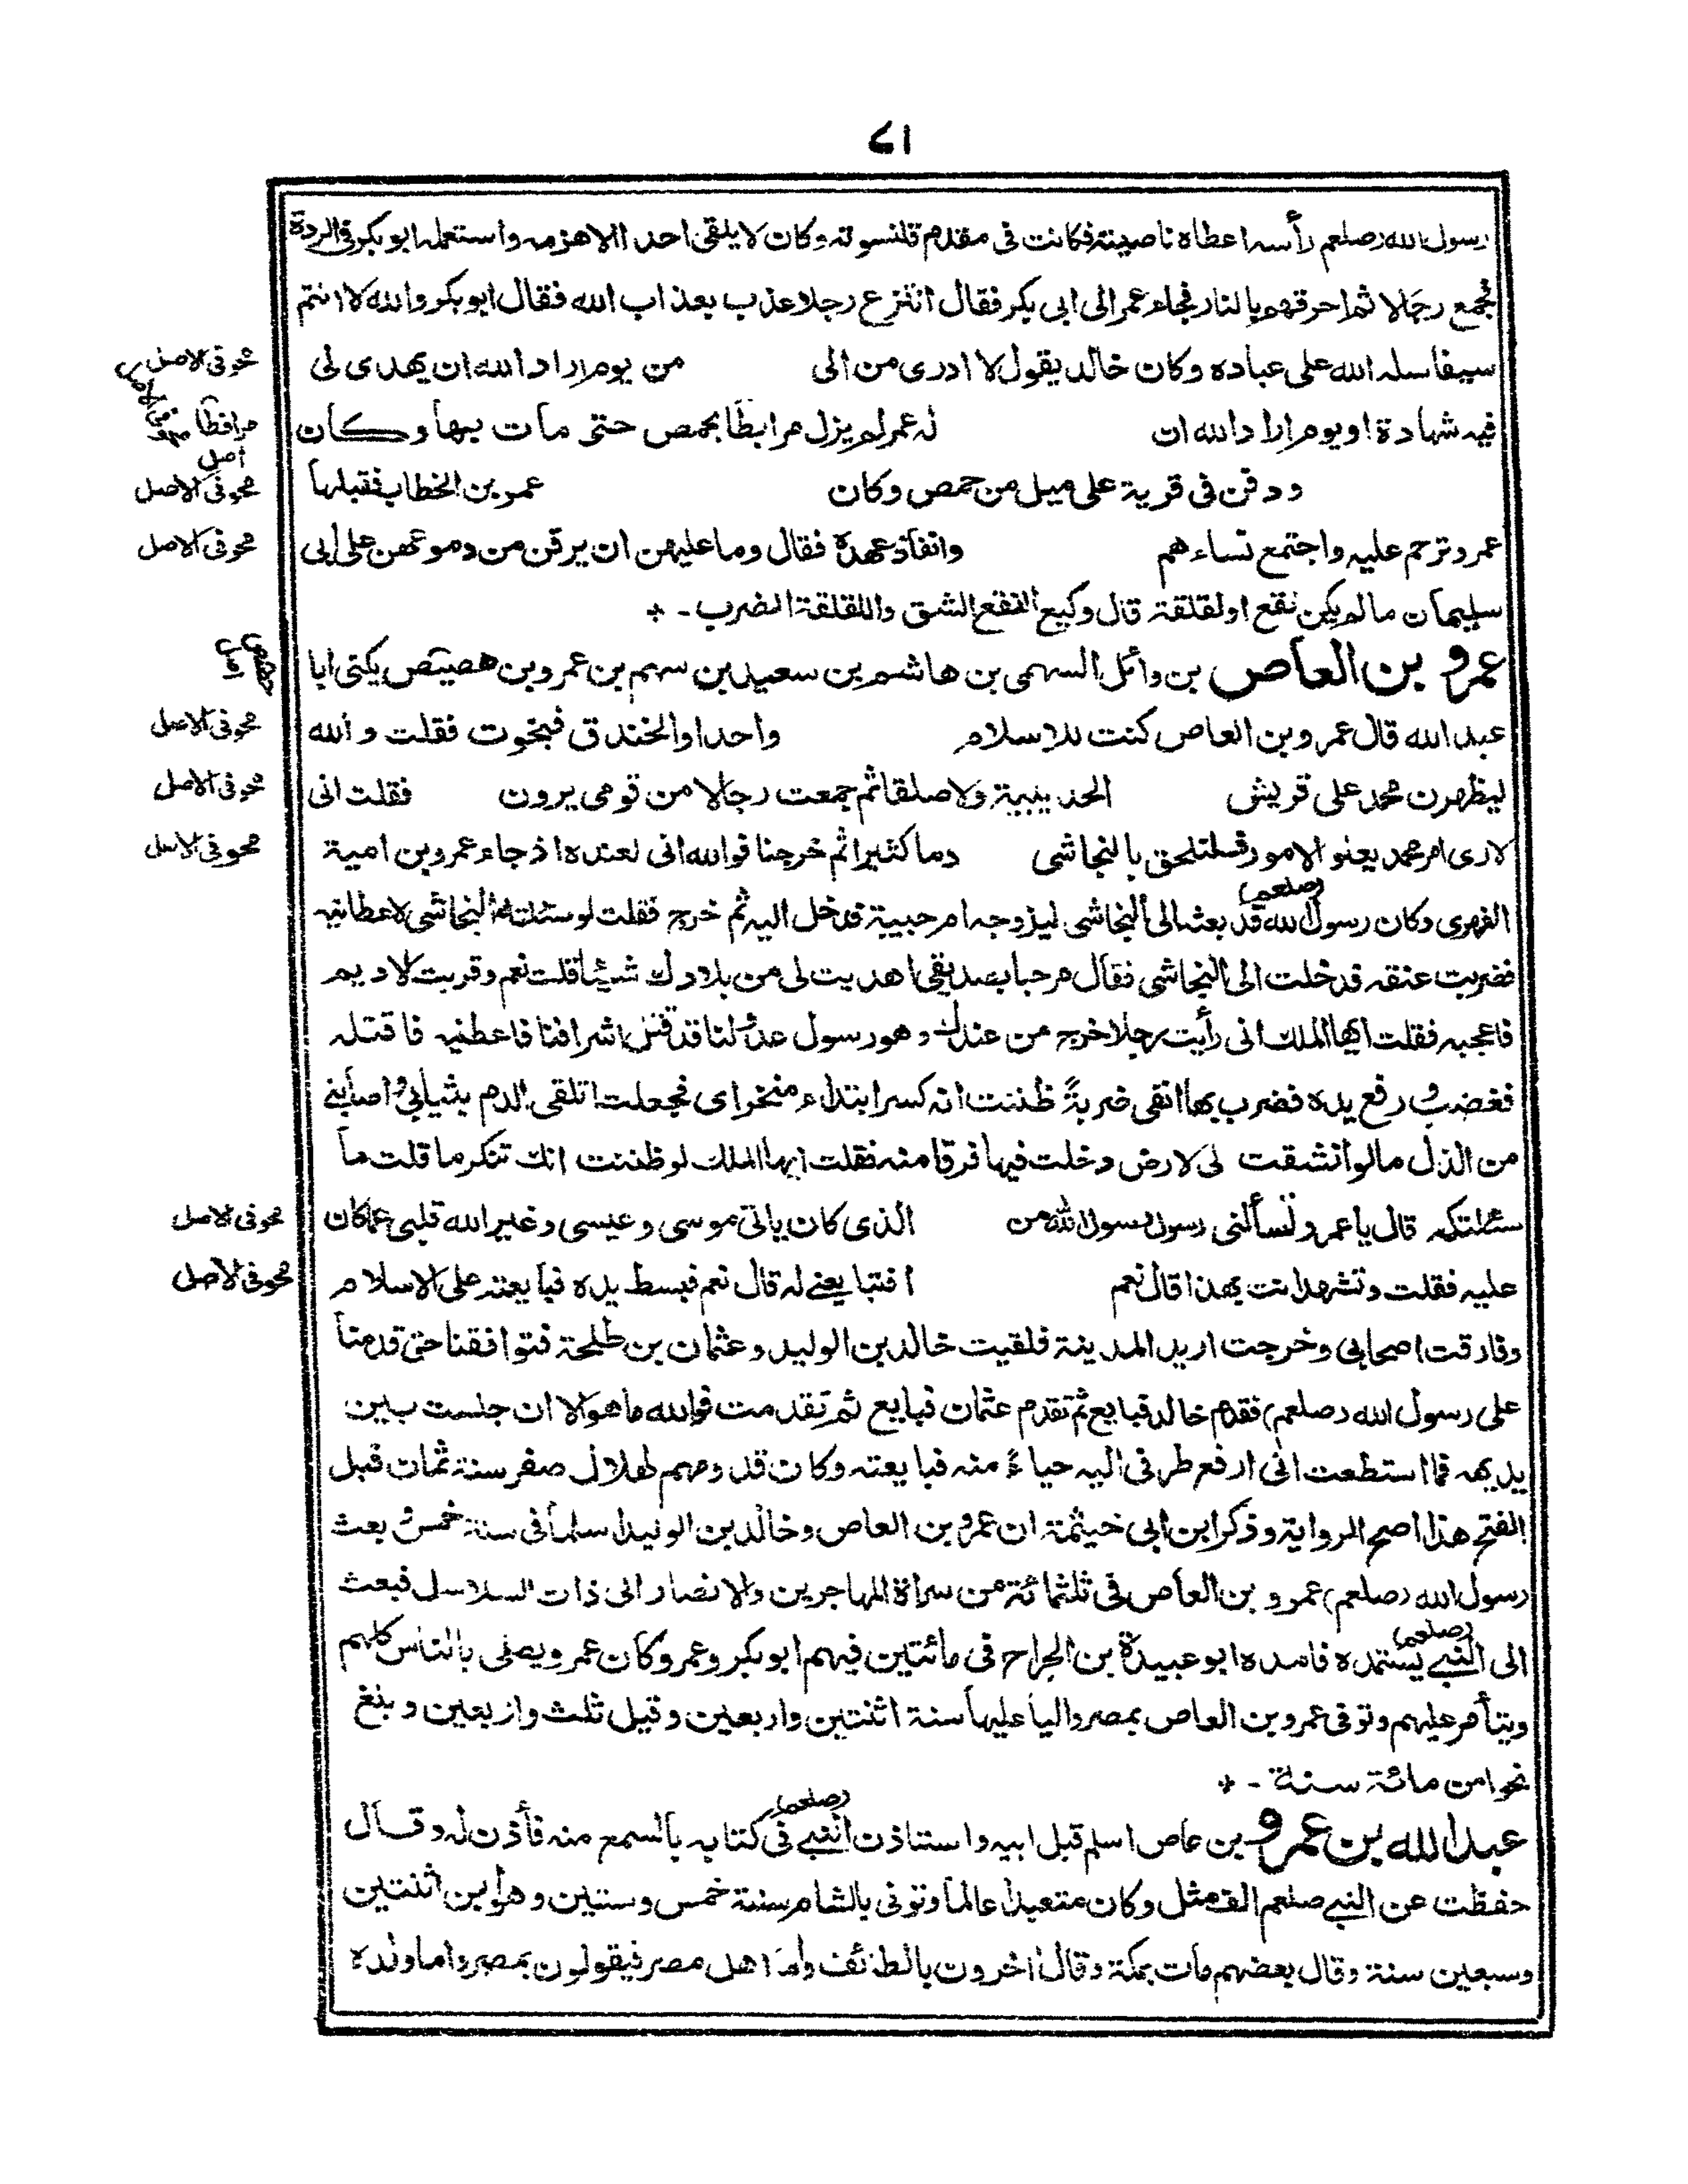 رسول الله (صلعم) رأسه اعطاه ناصيته فكانت فى مقدم قلنسوته وكان لا يلقى احد الا هزمه واستعمله ابو بكر فى الردة
فجمع رجالا ثم احرقهم بالنار فجاء عمر الى ابى بكر فقال انتزع رجلا عذب بعذاب الله فقال ابو بكر والله لا انتم
سيفا سله الله على عباده وكان خالد يقول لا ادرى من الى من يوم اراد الله ان يهدى لى محو فى الاصل
فيه شهادة او يوم اراد الله ان له عمر لم يزل مرابطا بحمص حتى مات بها وكان
ودفن فى قرية على ميل من حمص وكان عمر بن الخطاب فقبلها محو فى الاصل
عمر وترحم عليه واجتمع نساءهم وانفاذ عهده فقال وما عليهن ان يرقن من دموعهن على ابى محو فى الاصل
سليمان ما لم يكن نقع او لقلقة قال وكيع النقع الشق واللقلقة الضرب - *
عمرو بن العاص بن وائل السهمى بن هاشم بن سعيد بن سهم بن عمرو بن هصيص يكنى ابا
عبد الله قال عمرو بن العاص كنت للاسلام واحدا والخندق فنجوت فقلت والله محو فى الاصل
ليظهرن محمد على قريش الحديبية ولا صلقا ثم جمعت رجالا من قومى يرون فقلت انى محو فى الاصل
لارى امر محمد يعلو الامور قسلتلحق بالنجاشى دما كثيرا ثم خرجنا فوالله انى لعنده اذ جاء عمرو بن امية محو فى الاصل
الفهرى وكان رسول الله (صلعم) قد بعثه الى النجاشى ليزوجه ام حبيبة فدخل اليه ثم خرج فقلت لو سئلت النجاشى لاعطانيه
فضربت عنقه فدخلت الى النجاشى فقال مرحبا بصديقى اهديت لى من بلادك شيئا قلت نعم وقربت لاديم
فاعجبه فقلت ايها الملك انى رأيت رجلا خرج من عندك وهو رسول عدو لنا قد قتل اشرافنا فاعطنيه فاقتله
فغضب ورفع يده فضرب بها انفى ضربة ظننت انه كسر ابتداء منخراى فجعلت اتلقى الدم بثيابى واصابنى
من الذل مالو انشقت لى لارض دخلت فيها فرقا منه فقلت ايها الملك لو ظننت انك تنكر ما قلت ما
سئلتكه قال يا عمرو تسألنى رسول رسول الله من الذى كان ياتى موسى وعيسى وغير الله قلبى عما كان محو فى الاصل
عليه فقلت وتشهد انت بهذا قال نعم افتبايعنى له قال نعم فبسط يده فبايعته على الاسلام محو فى الاصل
وفارقت اصحابى وخرجت اريد المدينة فلقيت خالد بن الوليد وعثمان بن طلحة فتوافقنا حتى قدمنا
على رسول الله (صلعم) فقدم خالد فبايع ثم تقدم عثمان فبايع ثم تقدمت فوالله ما هو الا ان جلست بين
يديه فما استطعت انى ارفع طرفى اليه حياء منه فبايعته وكان قدومهم لهلال صفر سنة ثمان قبل
الفتح هذا اصح الرواية وذكر ابن ابى خيثمة ان عمرو بن العاص وخالد بن الوليد اسلما فى سنة خمس وبعث
رسول الله (صلعم) عمرو بن العاص فى ثلثمائة من سراة المهاجرين والانصار الى ذات السلاسل فبعث
الى النبى (صلعم) يستمده فامده ابو عبيدة بن الجراح فى مائتين فيهم ابو بكر وعمر وكان عمرو يصلى بالناس كلهم
ويتأمر عليهم وتوفى عمرو بن العاص بمصر واليا عليها سنة اثنتين واربعين وقيل ثلث واربعين وبلغ
نحوا من مائة سنة - *
عبد الله بن عمرو بن عاص اسلم قبل ابيه واستاذن النبى (صلعم) فى كتابه بالسمع منه فأذن له وقال
حفظت عن النبى صلعم الف مثل وكان متعبدا عالما وتوفى بالشام سنة خمس وستين وهو ابن اثنتين
وسبعين سنة وقال بعضهم مات بمكة وقال اخرون بالطائف واما اهل مصر فيقولون بمصر واما ولده